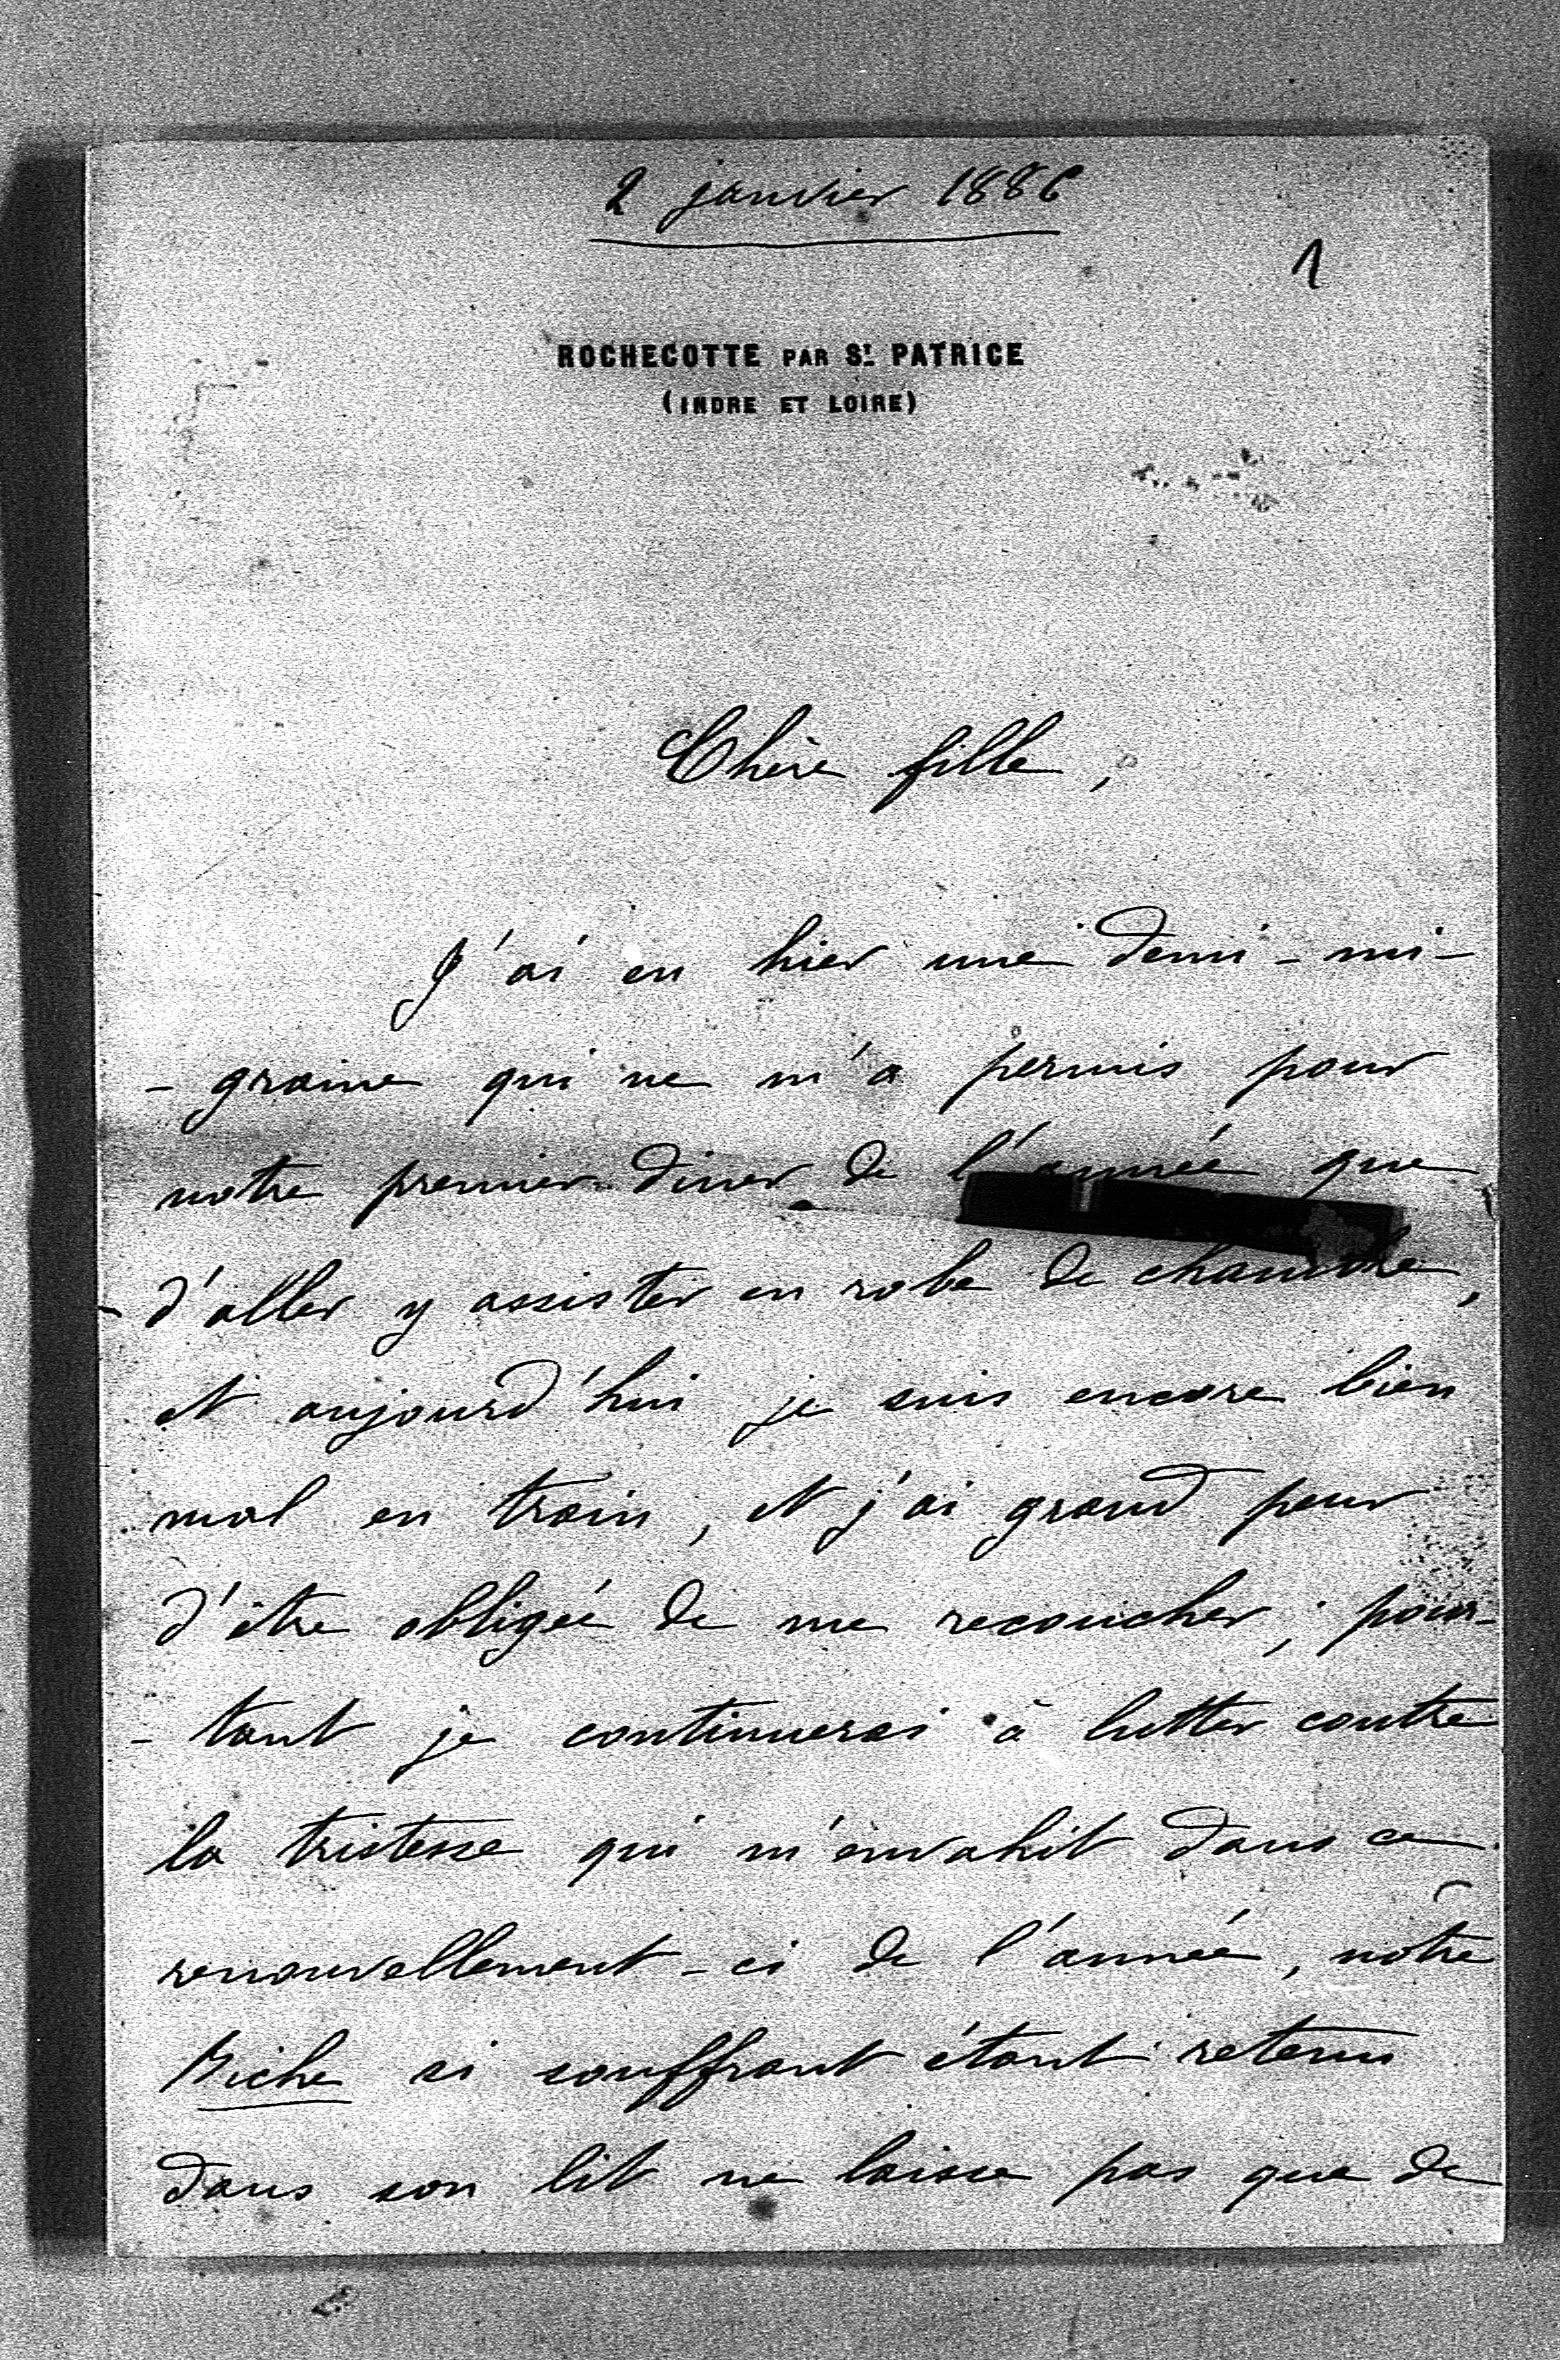 2 janvier 1886
1
ROCHECOTTE PAR ST PATRICE
(INDRE ET LOIRE)
Chère fille,
J'ai eu hier une demi-mi-
-graine qui ne m'a permis pour
notre premier diner de l'année que
d'aller y assister en robe de chambre,
et aujourd'hui je suis encore bien
mal en train, et j'ai grand peur
d'être obligée de me recoucher; pour-
-tant je continuerai à lutter contre
la tristesse qui m'envahit dans ce
renouvellement-ci de l'année, nôtre
si souffrant étant retenu
dans son lit ne laisse pas que de